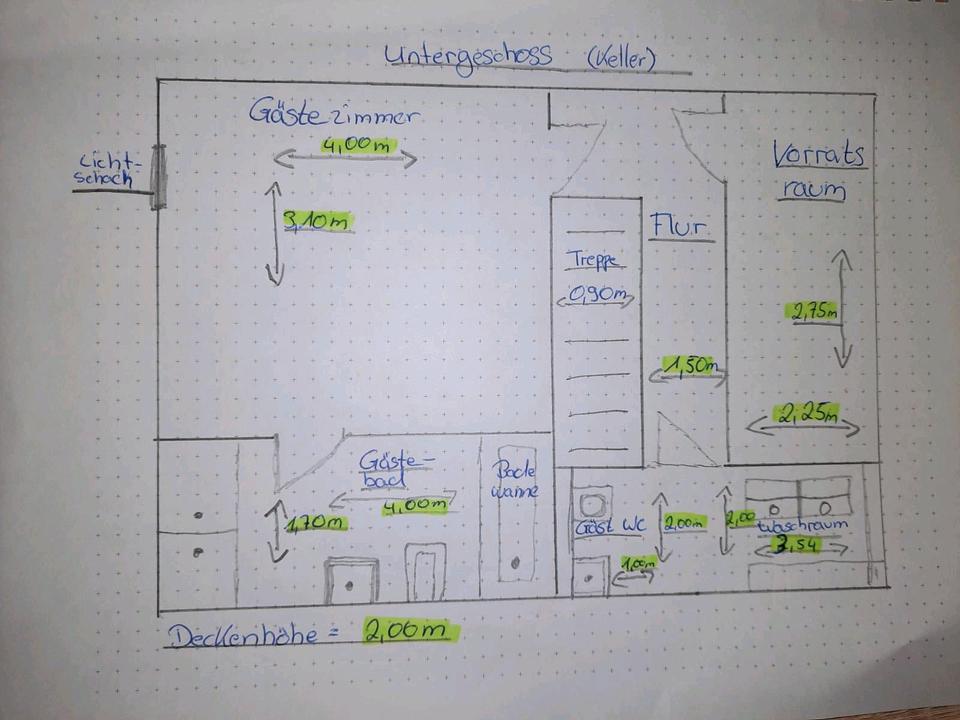 Untergeschoss (Keller)
Gästezimmer
4,00m
3,10m
Licht-
schach
Vorrats
raum
Flur
Treppe
0,90m
2,75m
1,50m
2,25m
Gäste-
bad
4,00m
1,70m
Bade
wanne
Gäst WC
2,00m
1,00m
2,00
Waschraum
3,54
Deckenhöhe = 2,06m